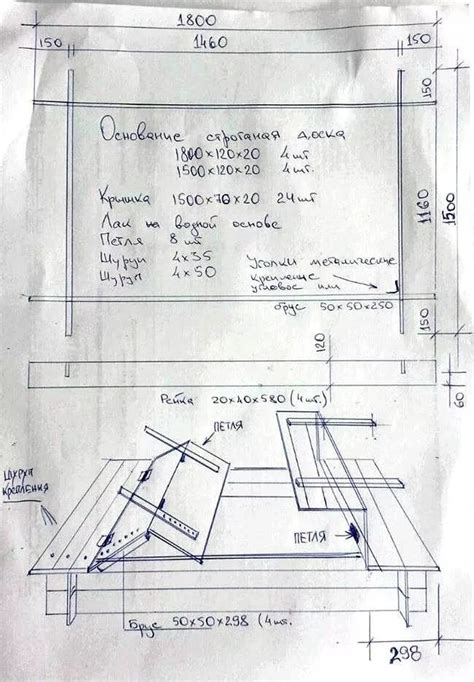 1800
150 1460 150
150
Основание строганая доска
1800x120x20 4 шт
1500x120x20 4 шт.
Крышка 1500x70x20 24 шт
Лак на водной основе
Петля 8 шт
Шуруп 4x35
Шуруп 4x50
Уголки металические
крепление
угловое или
брус 50x50x250
1160
1500
150
120
60
Рейка 20x40x580 (4 шт.)
ПЕТЛЯ
КРЕПЛЕНИЯ
ПЕТЛЯ
Брус 50x50x298 (4 шт.
298